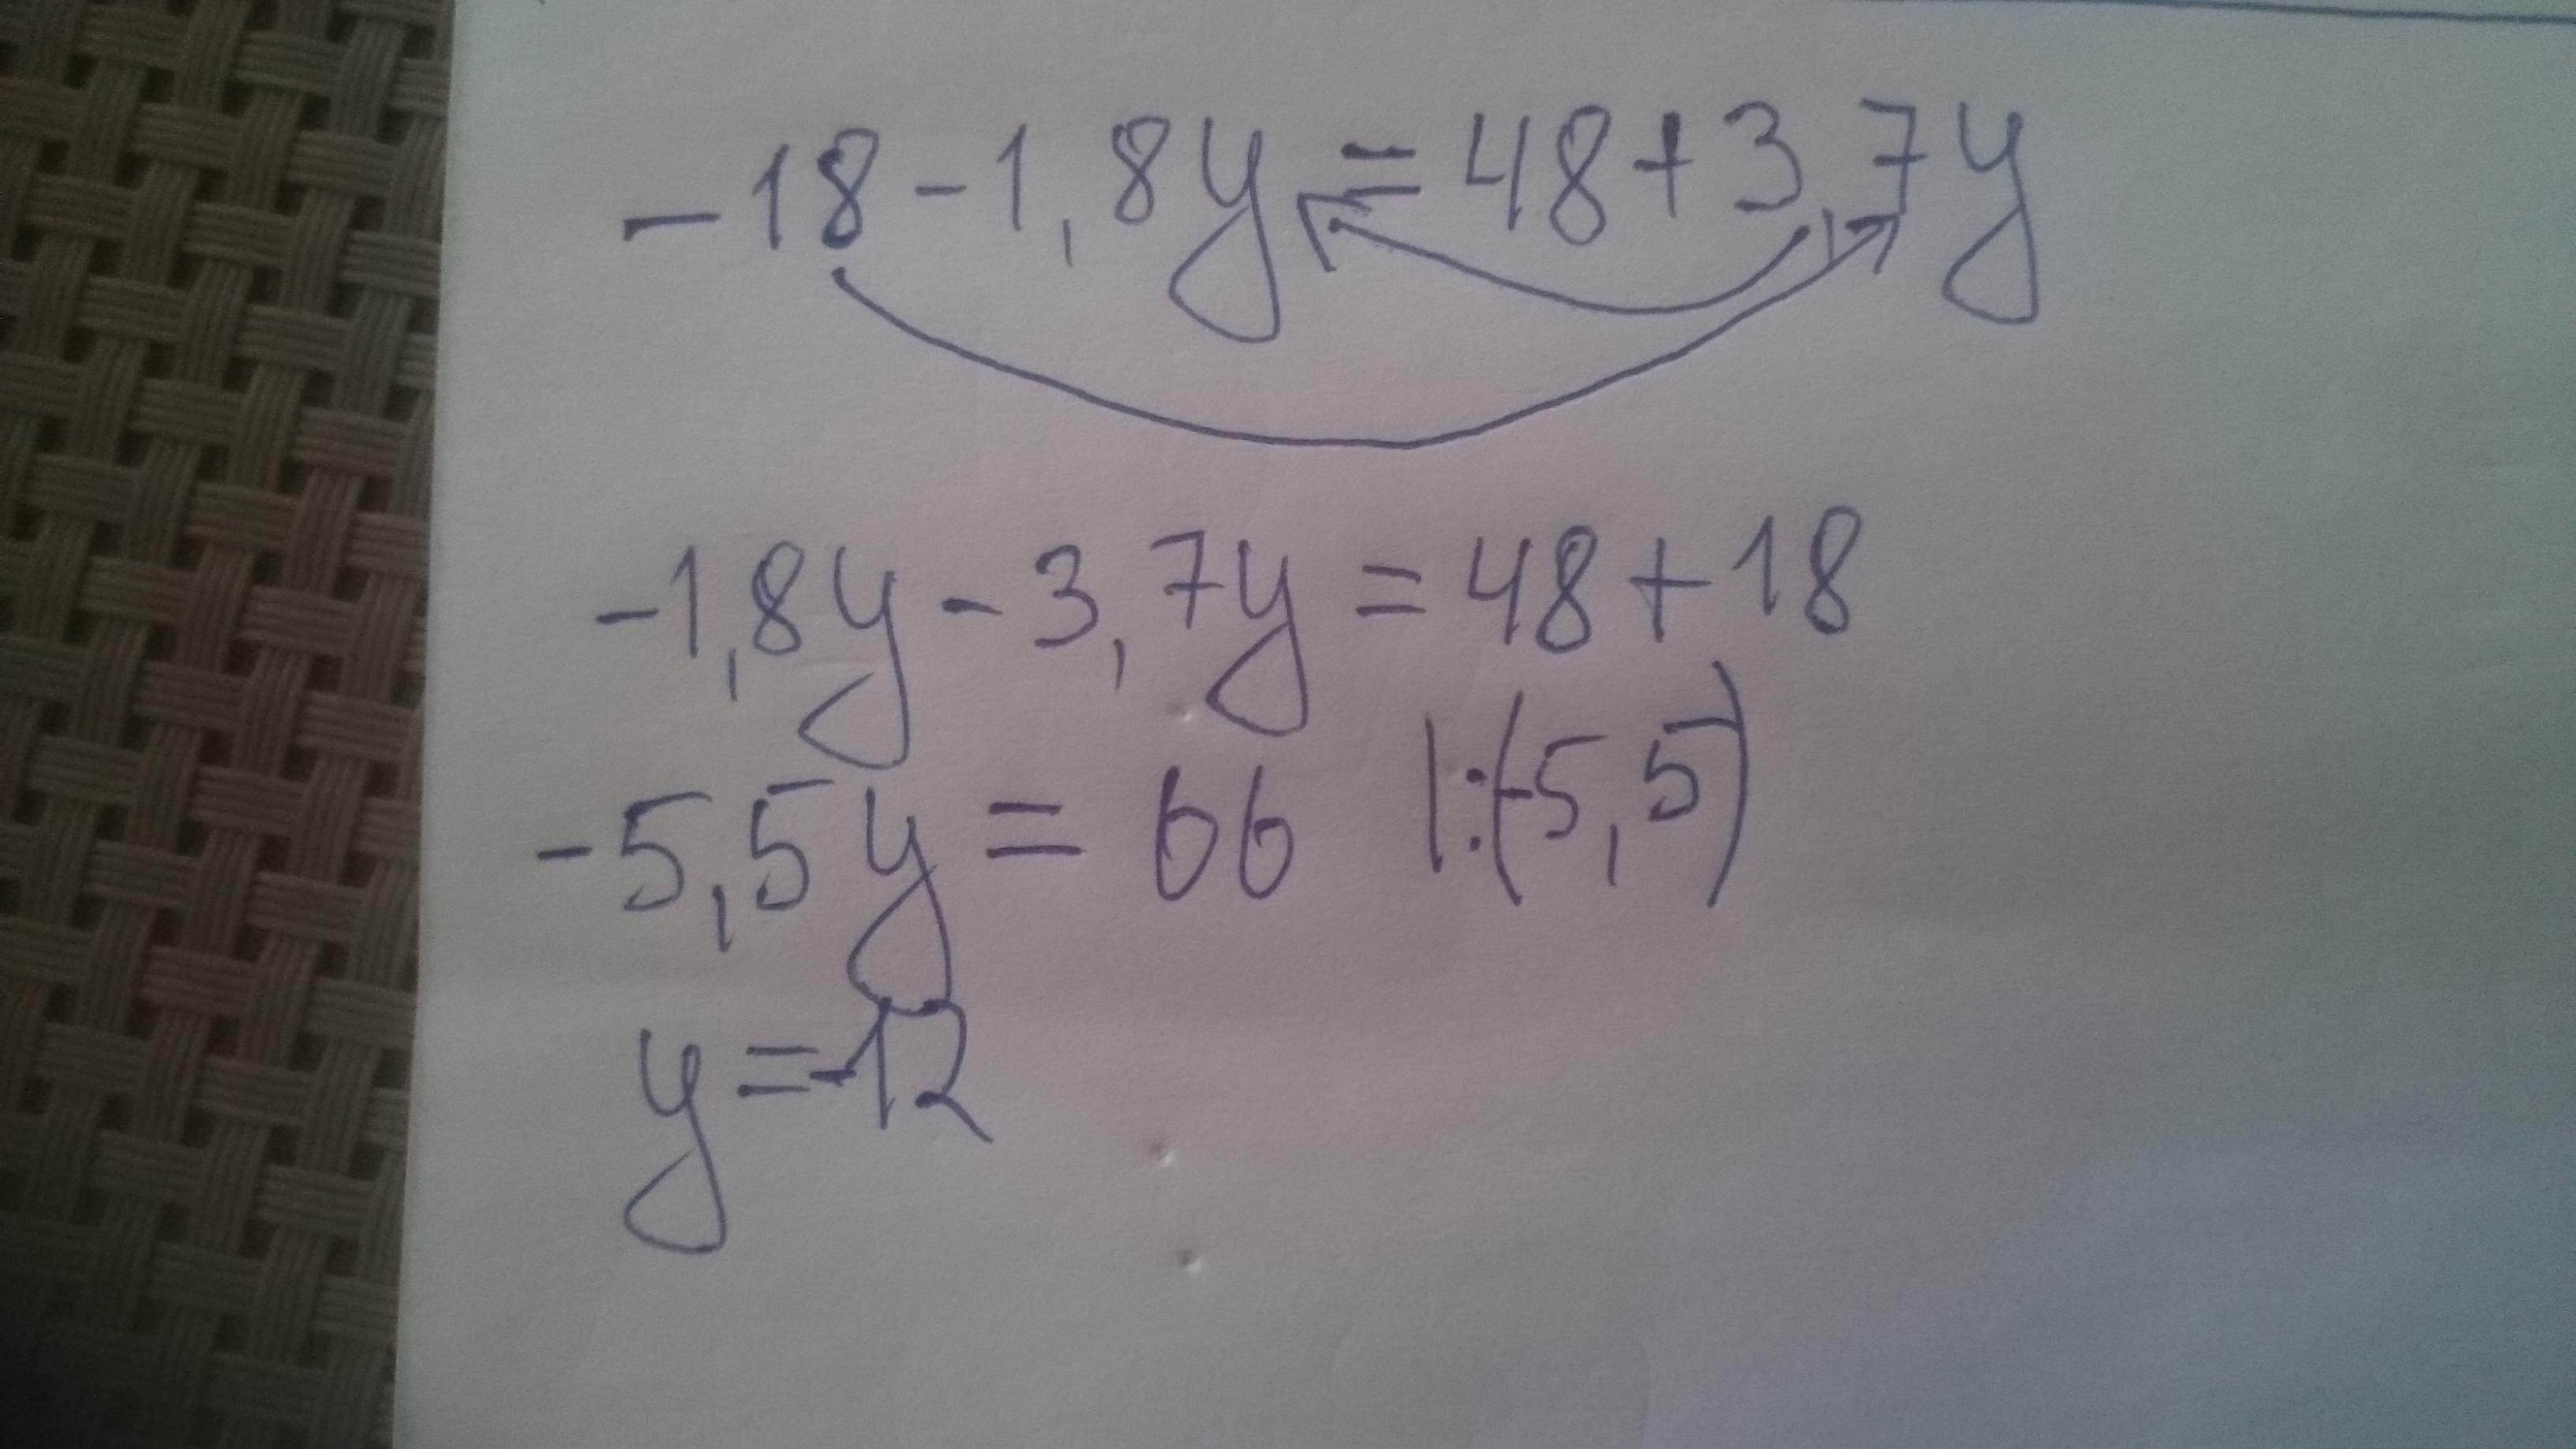 -18-1,8y=48+3,7y
-1,8y-3,7y=48+18
-5,5y=66 |:(-5,5)
y=-12